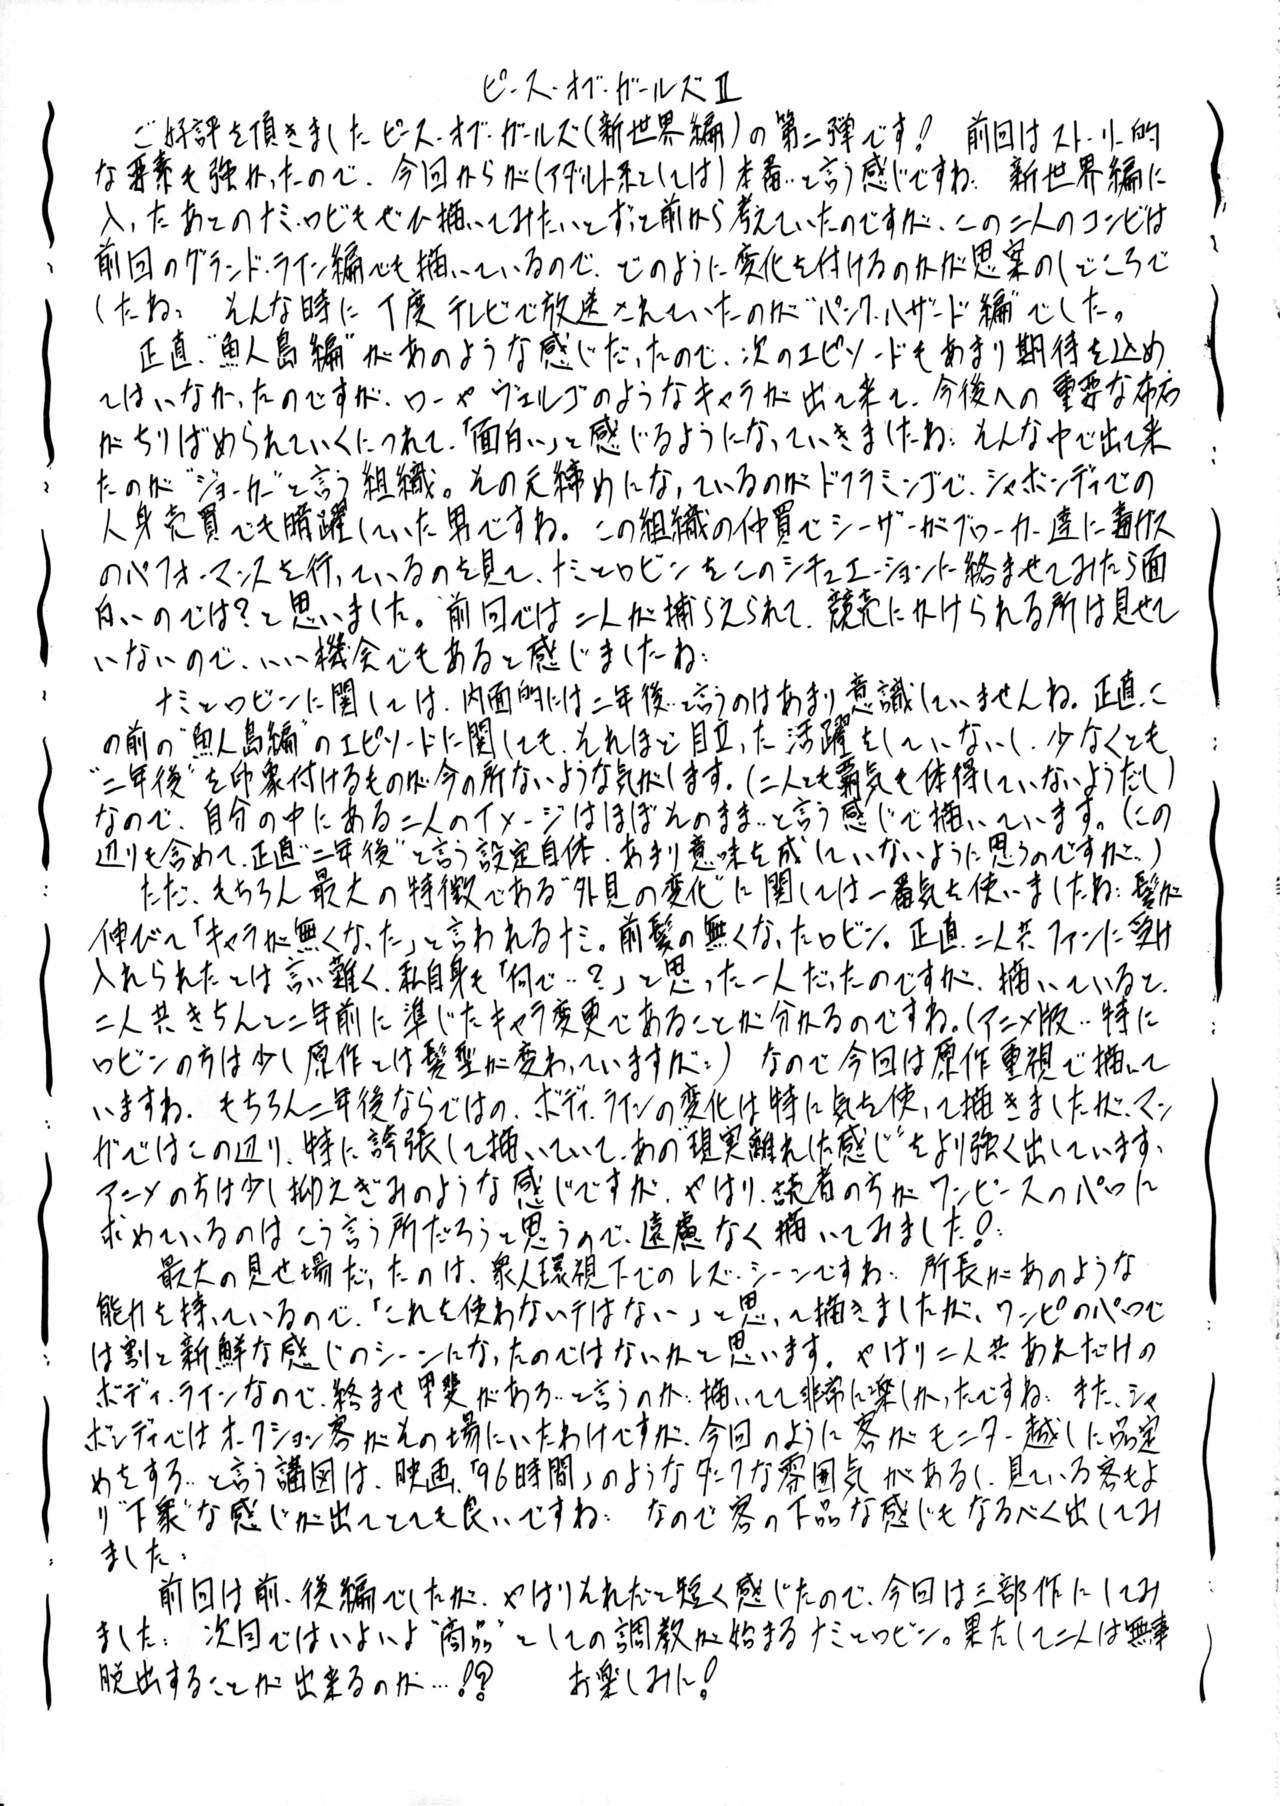 ピース・オブ・ガールズⅡ
ご好評を頂きましたピース・オブ・ガールズ(新世界編)の第二弾です! 前回はストーリー的
な要素も強かったので、今回からが(アダルト系としては)本番‥と言う感じですね‥ 新世界編に
入ったあとのナミ・ロビもぜひ描いてみたいとずっと前から考えていたのですが、この二人のコンビは
前回のグランド・ライン編でも描いているので、どのように変化を付けるのかが思案のしどころで
したね‥ そんな時に丁度テレビで放送されていたのが“パンク・ハザード編”でした。
正直、“魚人島編”があのような感じだったので、次のエピソードもあまり期待を込め
てはいなかったのですが、ローやヴェルゴのようなキャラが出て来て、今後への重要な布石
がちりばめられていくにつれて、「面白い」と感じるようになっていきましたね‥ そんな中で出て来
たのが“ジョーカー”と言う組織。その元締めになっているのがドフラミンゴで、シャボンディでの
人身売買でも暗躍していた男ですね。この組織の仲買でシーザーがブローカー達に毒ガス
のパフォーマンスを行っているのを見て、ナミとロビンをこのシチュエーションに絡ませてみたら面
白いのでは?と思いました。前回では二人が捕らえられて、競売にかけられる所は見せて
いないので、いい機会でもあると感じましたね‥
ナミとロビンに関しては、内面的には二年後‥と言うのはあまり意識していませんね。正直、こ
の前の“魚人島編”のエピソードに関しても、それほど目立った活躍をしていないし、少なくとも
“二年後”を印象付けるものが今の所ないような気がします。(二人とも覇気も体得していないようだし)
なので、自分の中にある二人のイメージはほぼそのまま‥と言う感じで描いています。(この
辺りも含めて、正直“二年後”と言う設定自体、あまり意味を成していないように思うのですが‥)
ただ、もちろん最大の特徴である“外見の変化”に関しては一番気を使いましたね‥髪が
伸びて「キャラが無くなった」と言われるナミ。前髪の無くなったロビン。正直、二人共ファンに受け
入れられたとは言い難く、私自身も「何で‥?」と思った一人だったのですが、描いていると、
二人共きちんと二年前に準じたキャラ変更であることが分かるのですね。(アニメ版‥特に
ロビンの方は少し原作とは髪型が変わっていますが‥) なので今回は原作重視で描いて
いますね。もちろん二年後ならではの、ボディ・ラインの変化は特に気を使って描きましたが、マン
ガではこの辺り、特に誇張して描いていて、あの“現実離れした感じ”をより強く出しています。
アニメの方は少し抑えぎみのような感じですが、やはり、読者の方がワンピースのパロに
求めているのはこう言う所だろうと思うので、遠慮なく描いてみました!‥
最大の見せ場だったのは、衆人環視下でのレズ・シーンですね‥ 所長があのような
能力を持っているので、「これを使わないテはない」と思って描きましたが、ワンピのパロで
は割と新鮮な感じのシーンになったのではないかと思います。やはり二人共あれだけの
ボディ・ラインなので、絡ませ甲斐がある‥と言うのか‥描いてて非常に楽しかったですね‥ また、シャ
ボンディではオークション客がその場にいたわけですが、今回のように客がモニター越しに品定
めをする‥と言う構図は、映画、「96時間」のようなダークな雰囲気があるし、見ている客もよ
り“下衆”な感じが出てとても良いですね‥ なので客の下品な感じもなるべく出してみ
ました。
前回は前、後編でしたが、やはりそれだと短く感じたので、今回は三部作にしてみ
ました‥ 次回ではいよいよ“商品”としての調教が始まるナミとロビン。果たして二人は無事
脱出することが出来るのか…!? お楽しみに!